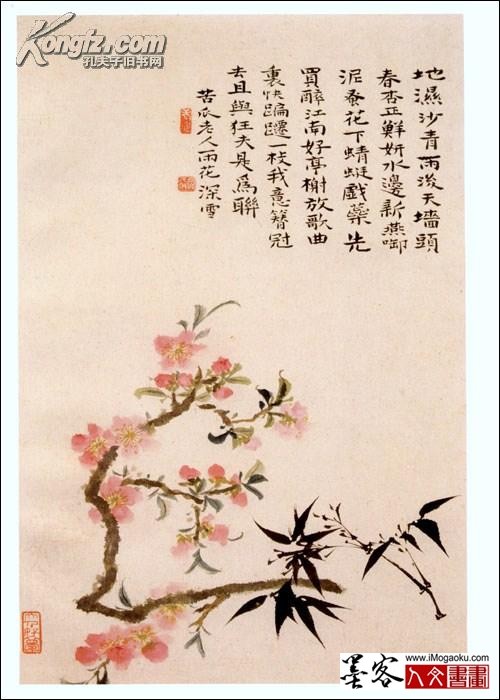 Kongfz.com
孔夫子旧书网
地濕沙青雨後天墻頭
春杏正鮮妍水邊新燕啣
泥蚤花下蜻蜓戲藥先
買醉江南好亭榭放歌曲
裏快蹁躚一枝我意簪冠
去且與狂夫是爲聯
苦瓜老人雨花深雪
www.iMogaoku.com
墨客人文書畫